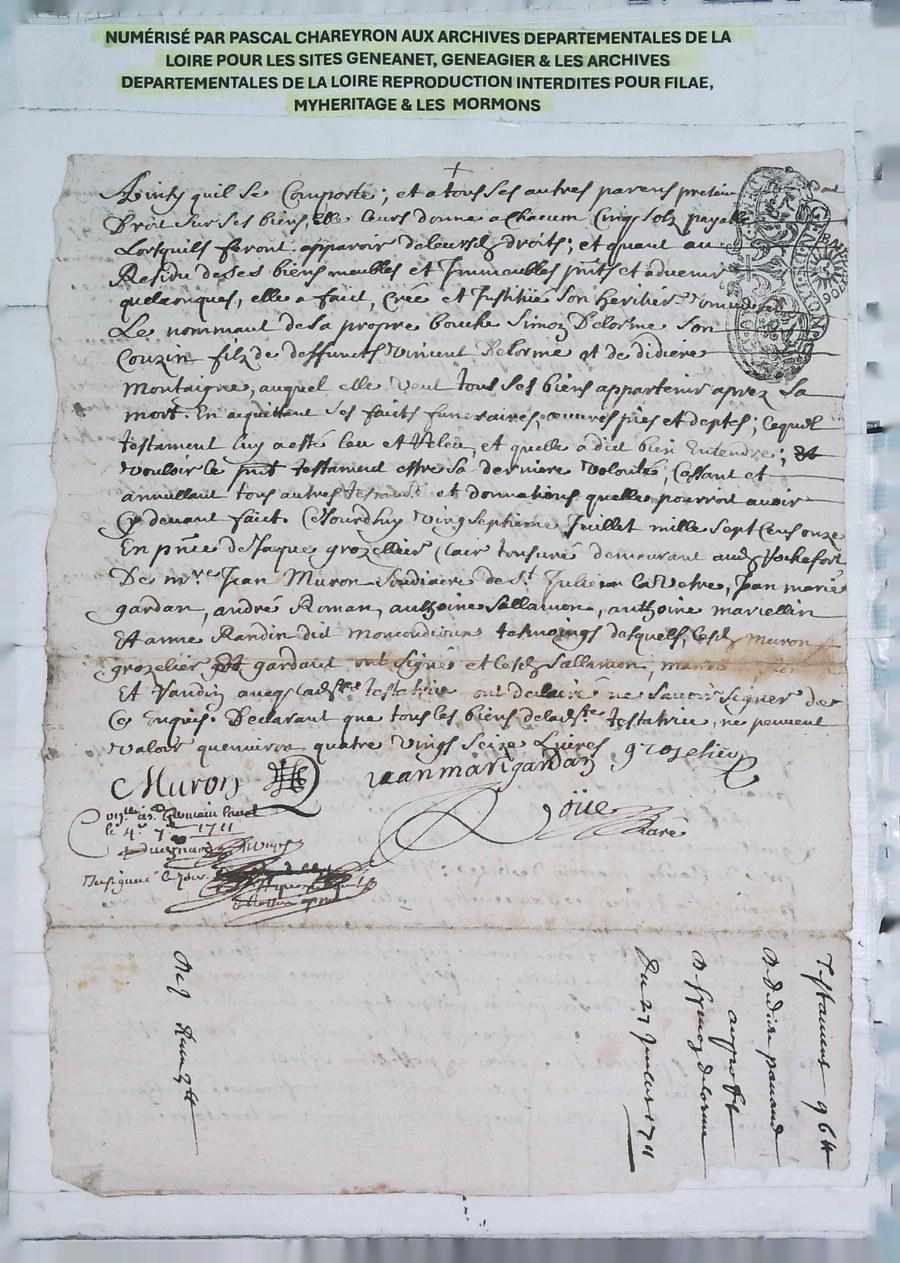 NUMÉRISÉ PAR PASCAL CHAREYRON AUX ARCHIVES DEPARTEMENTALES DE LA
LOIRE POUR LES SITES GENEANET, GENEAGIER & LES ARCHIVES
DEPARTEMENTALES DE LA LOIRE REPRODUCTION INTERDITES POUR FILAE,
MYHERITAGE & LES MORMONS
Ainsy quil se Comporte ; et a tous ses autres parens preten
Droit sur ses biens, elle leurs donne a chacun Cinq solz payable
Lorsquils feront apparoir deleursd droits ; et quant au
Residu de ses biens meubles et Immeubles pnts et advenir
quelconques, elle a fait, Créé et Justitué son heritier
Le nommant de sa propre bouche Simoz Delorme son
Couzin filz de deffuncts Vincent Delorme et de didiere
Montaigne, auquel elle veut tous ses biens appartenir aprez sa
mort. En aquittant ses faits funeraires, œuvres pies et deptes ; Lequel
testament luy a esté leu et Releu, et quelle a dit bien Entendre ;
vouloir le pnt testament estre sa derniere volonté, Cassant et
annullant tous autres testamts et donnations quelle pourroit avoir
Cy devant fait. Cejourdhuy vingt septieme Juillet mille sept Cens onze
En pnce de Jaque grozellier Clair tonsuré demeurant aud Rochefort
De mre Jean Muron Soudiacre de St Julien la Vetre, Jean marie
gardan, andré Roman, anthoine Sallamon, anthoine marcellin
Et anne Randin dit tesmoings desquels, lesd muron
grozelier gardant ont signé et lesd Sallamon,
Et Randin avecq ladste testatrice ont declairé ne scavoir signer de
Ce Enquis. Declarant que tous les biens deladste testatrice, ne peuvent
valoir quenviron quatre vingt seize Livres
Muron Jean marie gardan grozelier
Goüe
Nore
le 4e 7bre 1711
Testament 9 6 tt
De didiere
au proffit
De Symoz delorme
Du 27 Juillet 1711